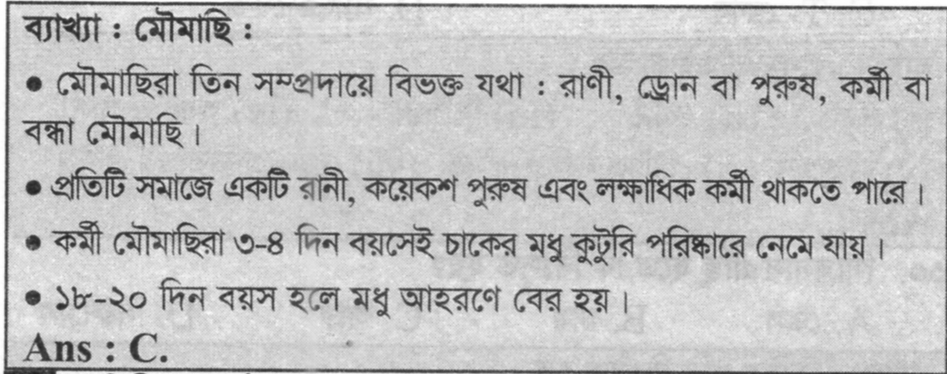 ব্যাখ্যা : মৌমাছি :
• মৌমাছিরা তিন সম্প্রদায়ে বিভক্ত যথা : রাণী, ড্রোন বা পুরুষ, কর্মী বা
বন্ধা মৌমাছি ।
• প্রতিটি সমাজে একটি রানী, কয়েকশ পুরুষ এবং লক্ষাধিক কর্মী থাকতে পারে ।
• কর্মী মৌমাছিরা ৩-৪ দিন বয়সেই চাকের মধু কুটুরি পরিষ্কারে নেমে যায় ।
• ১৮-২০ দিন বয়স হলে মধু আহরণে বের হয় ।
Ans : C.